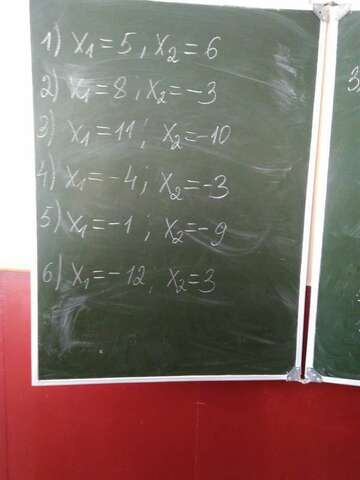 1) x₁=5; x₂=6
2) x₁=8; x₂=-3
3) x₁=11; x₂=-10
4) x₁=-4; x₂=-3
5) x₁=-1; x₂=-9
6) x₁=-12; x₂=3
3)